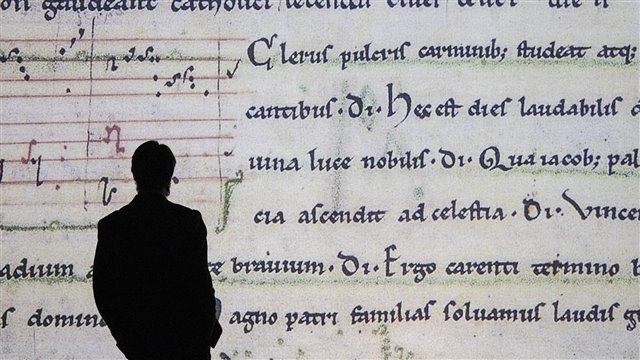 on gaudeant catholici letentur ciues
Clerus pulcris carminib; studeat atq;
cantibus · Di · Hec est dies laudabilis
uina luce nobilis · Di · Qua iacob; pal
cia ascendit ad celestia · Di · Vincen
adium te brauium · Di · Ergo carenti termino
s domin agno patri familias soluamus laudis g